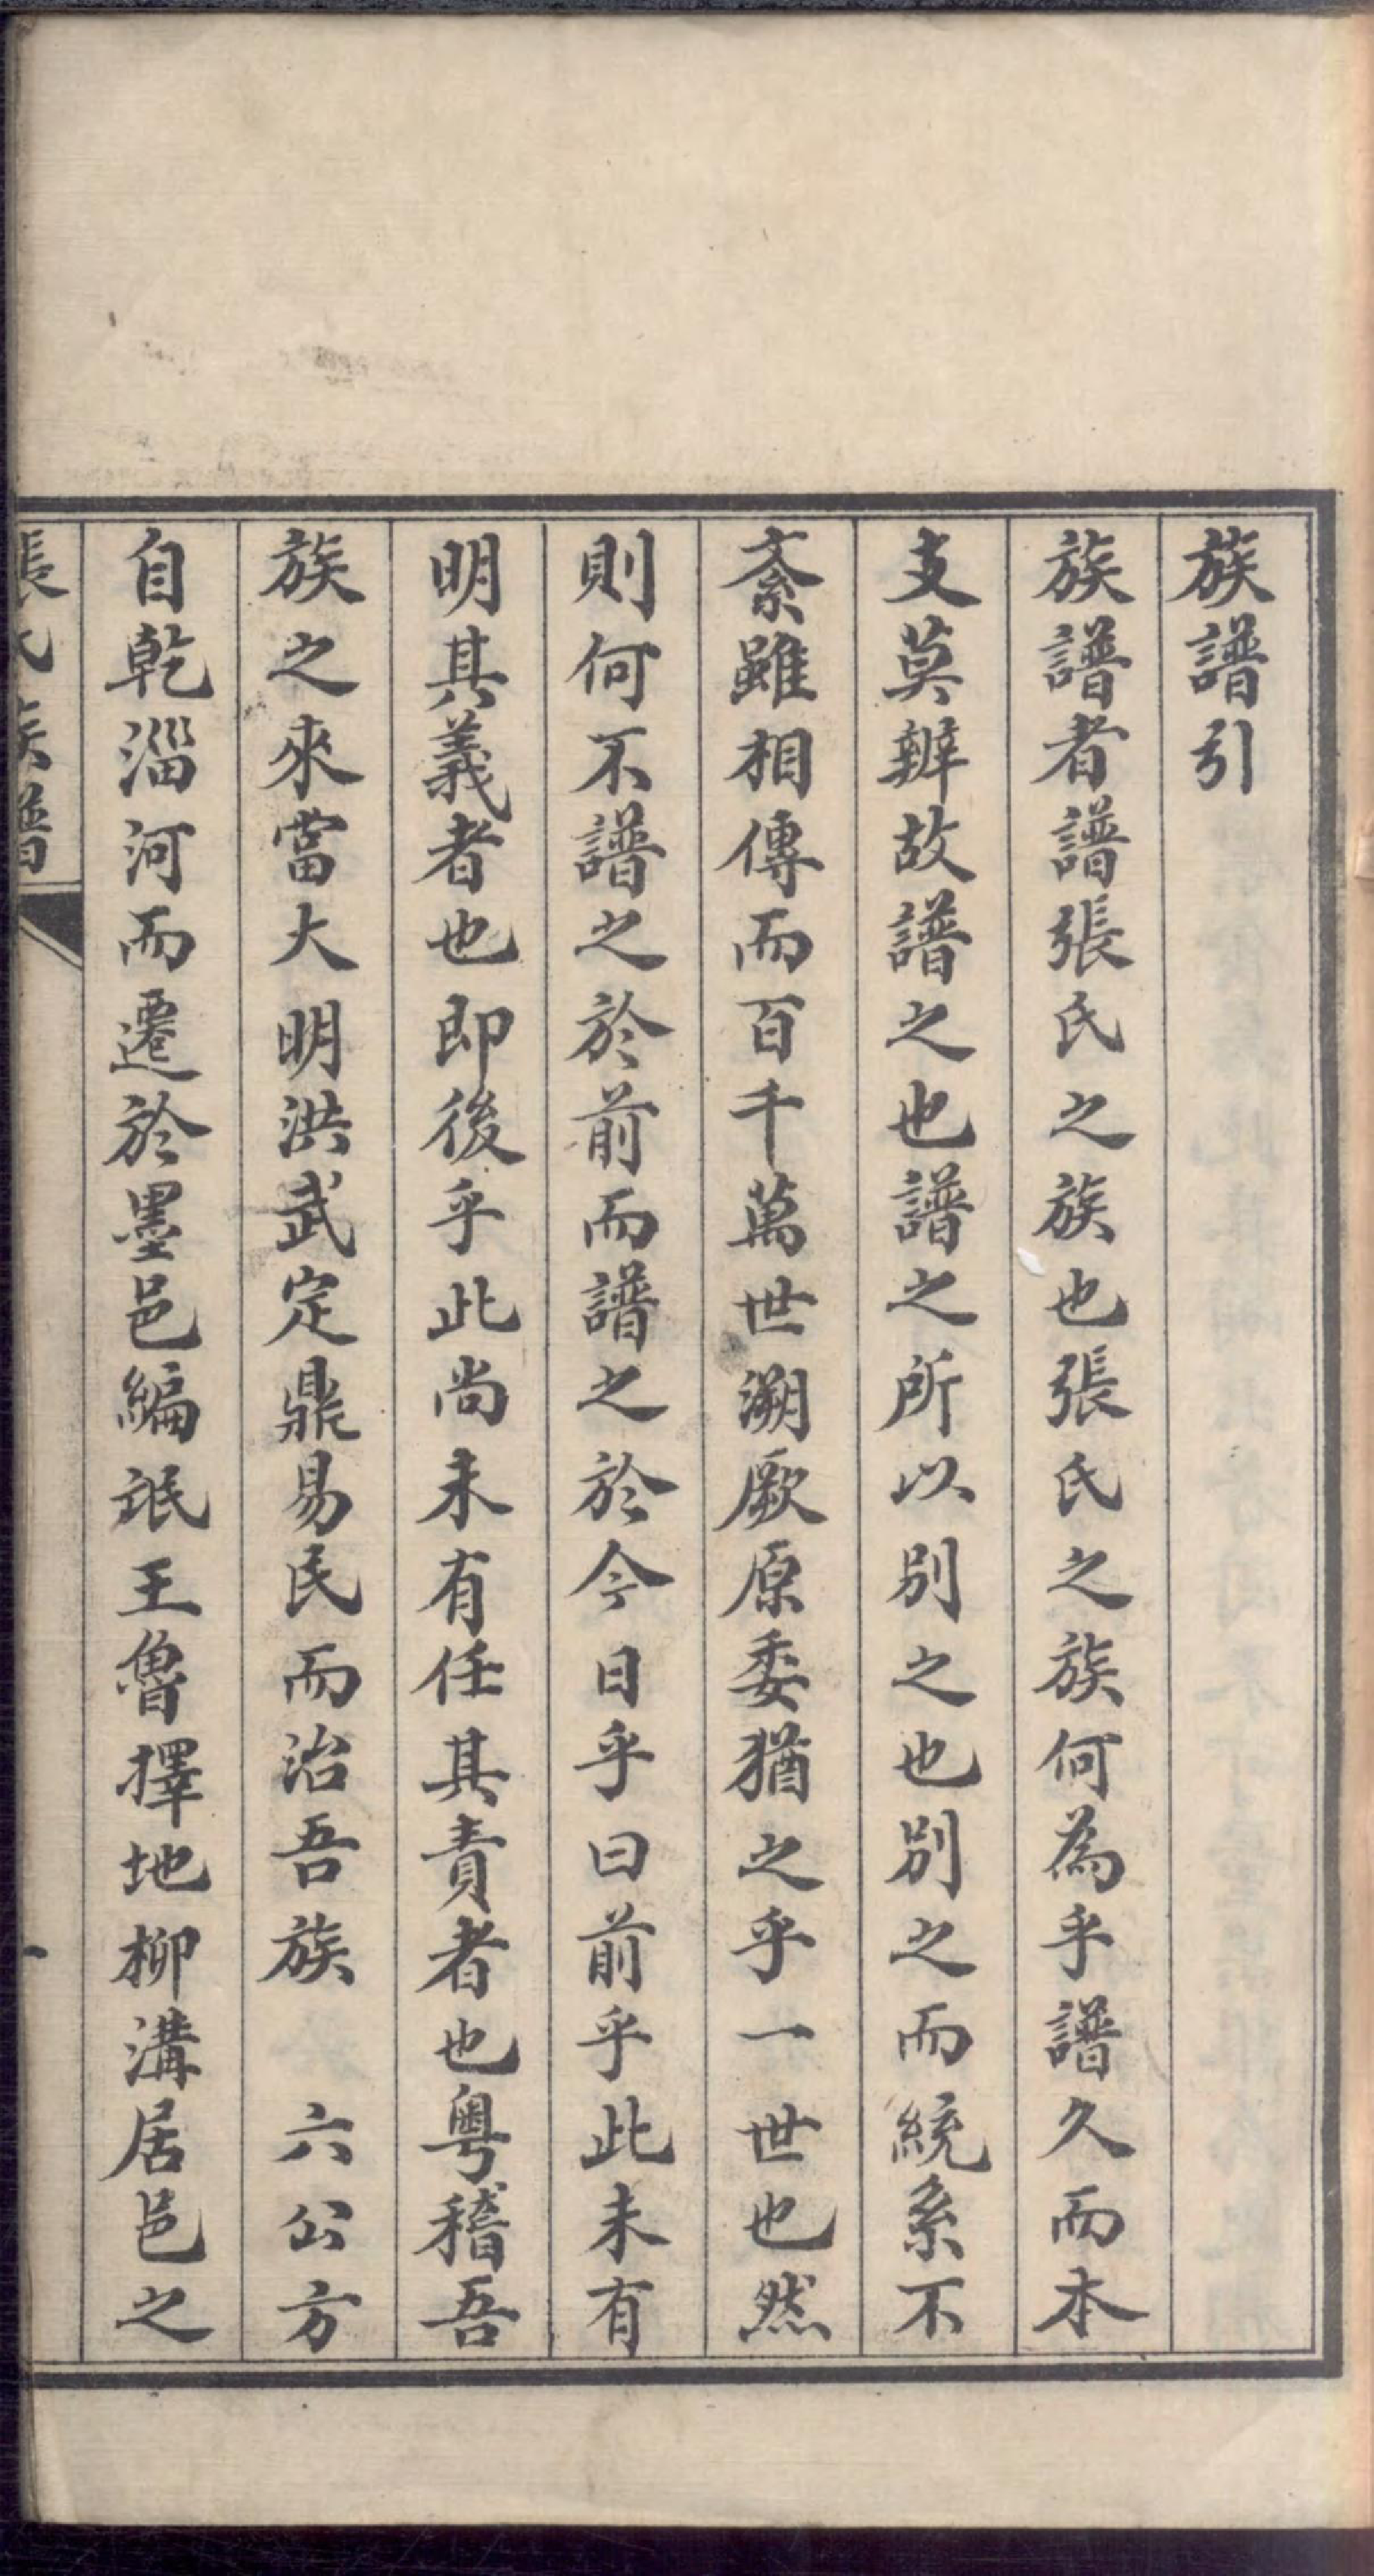 族譜引
族譜者譜張氏之族也張氏之族何為乎譜久而本
支莫辨故譜之也譜之所以別之也別之而統系不
紊雖相傳而百千萬世溯厥原委猶之乎一世也然
則何不譜之於前而譜之於今日乎曰前乎此未有
明其義者也即後乎此尚未有任其責者也粵稽吾
族之來當大明洪武定鼎易民而治吾族　六公方
自乾淄河而遷於墨邑編氓王魯擇地柳溝居邑之
張氏族譜
一